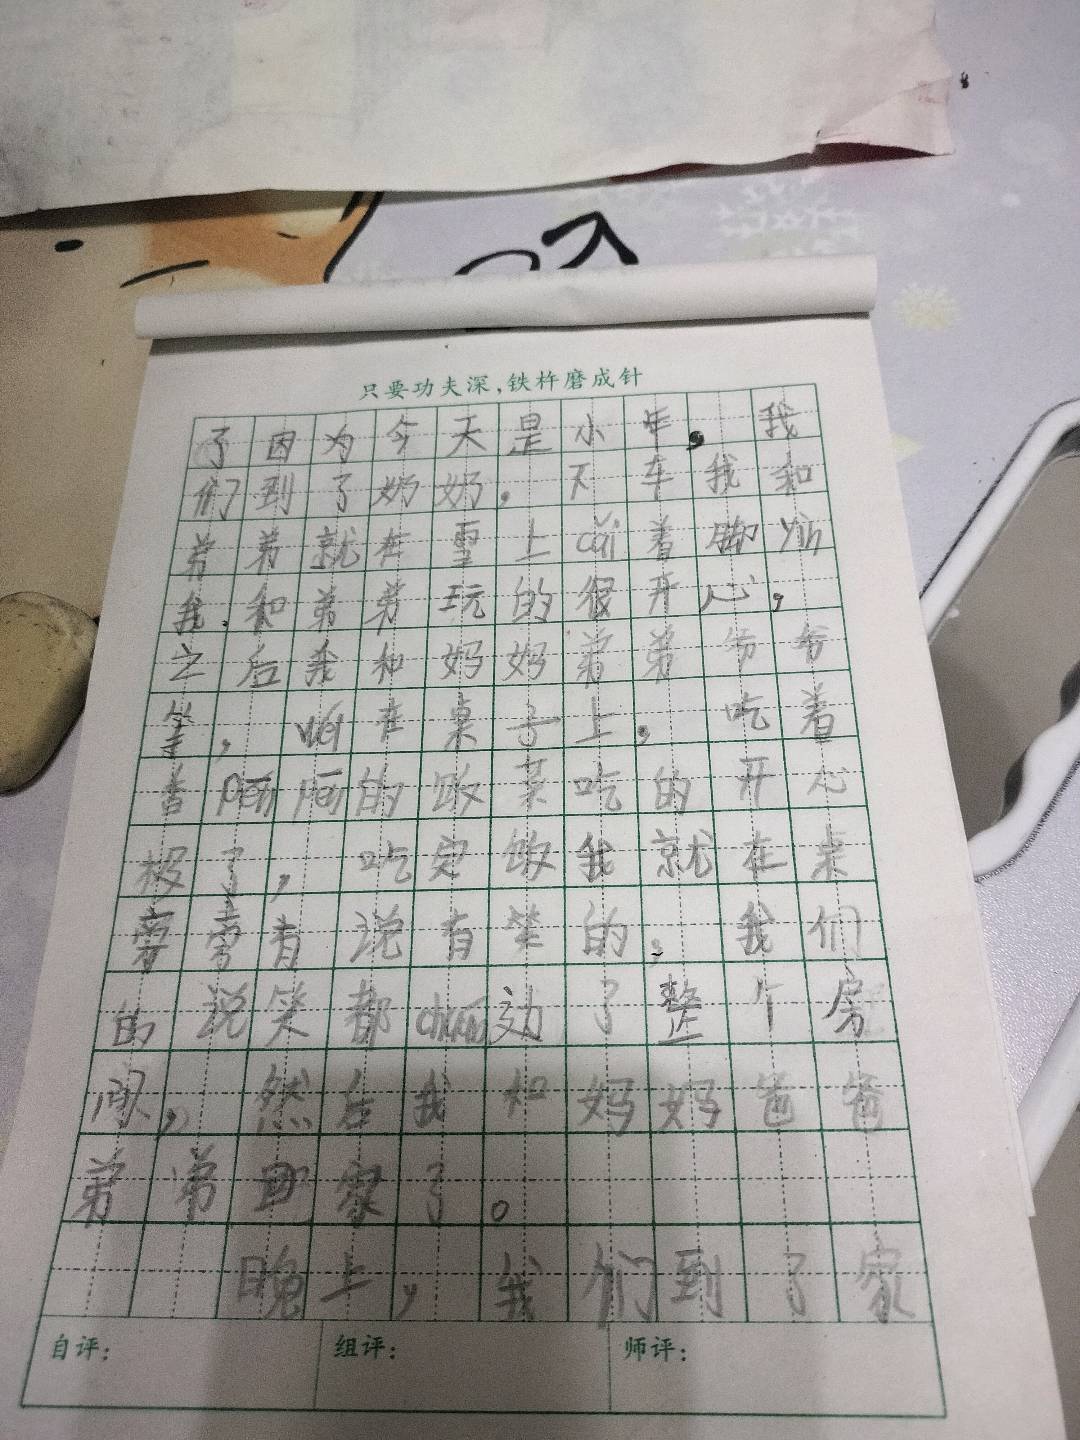 只要功夫深,铁杵磨成针
了因为今天是小年,我
们到了奶奶,下车我和
弟弟就在雪上cǎi着脚yìn
我.和弟弟玩的很开心,
之后我和妈妈弟弟爷爷
坐,在桌子上,吃着
香喷喷的饭菜吃的开心
极了,吃完饭我就在桌
旁旁有说有笑的,我们
的说笑都chuán动了整个房
间,然后我和妈妈爸爸
弟弟回家了。
晚上,我们到了家
自评: 组评: 师评: